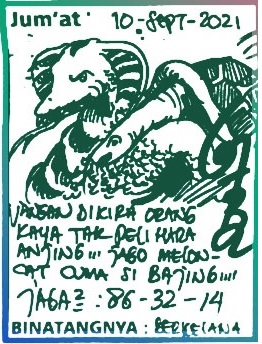 Jum'at 10-SEPT-2021
JANGAN DIKIRA ORANG
KAYA TAK PELIHARA
ANJING,,, JAGO MELON-
CAT CUMA SI BAJING,,,,
JAGA2 : 86-32-14
BINATANGNYA : BERKELANA